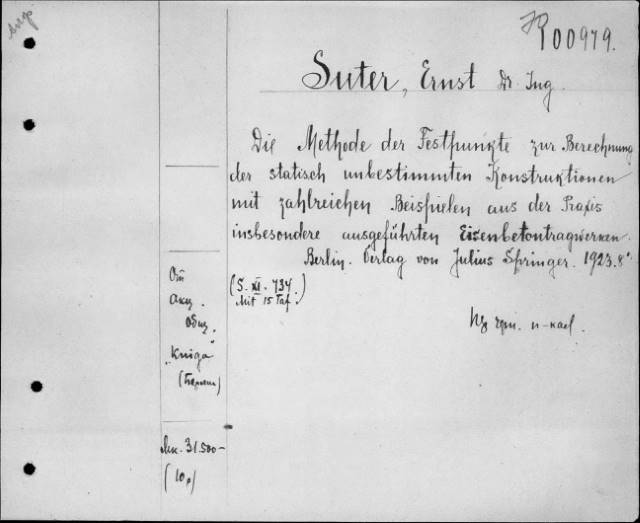 100979.
Suter, Ernst Dr. Ing.
Die Methode der Festpunkte zur Berechnung
der statisch unbestimmten Konstruktionen
mit zahlreichen Beispielen aus der Praxis
insbesondere ausgeführten Eisenbetontragwerken.
Berlin. Verlag von Julius Springer. 1923. 8°.
(S. XI. 734.)
Mit 15 Taf.
От
Акц.
Общ.
"Kniga"
31.500-
(10